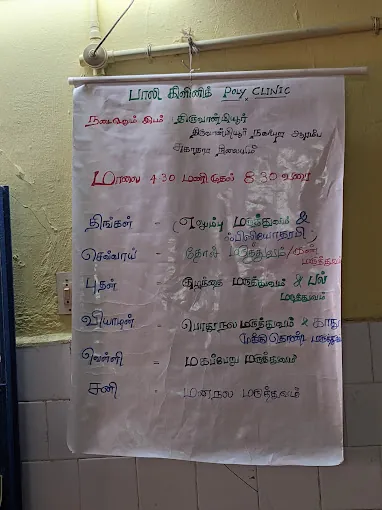 பாலி கிளினிக் POLY CLINIC
நடைபெறும் இடம் திருவான்மியூர்
திருவான்மியூர் நகர்புற ஆரம்ப
சுகாதார நிலையம்
மாலை 4.30 மணி முதல் 8.30 வரை
திங்கள் - எலும்பு மருத்துவம் &
பிசியோதெரபி
செவ்வாய் - தோல் மருத்துவம் / கண்
மருத்துவம்
புதன் - குழந்தை மருத்துவம் & பல்
மருத்துவம்
வியாழன் - பொதுநல மருத்துவம் & காது
மூக்கு தொண்டை மருத்துவம்
வெள்ளி = மகப்பேறு மருத்துவம்
சனி - மனநல மருத்துவம்